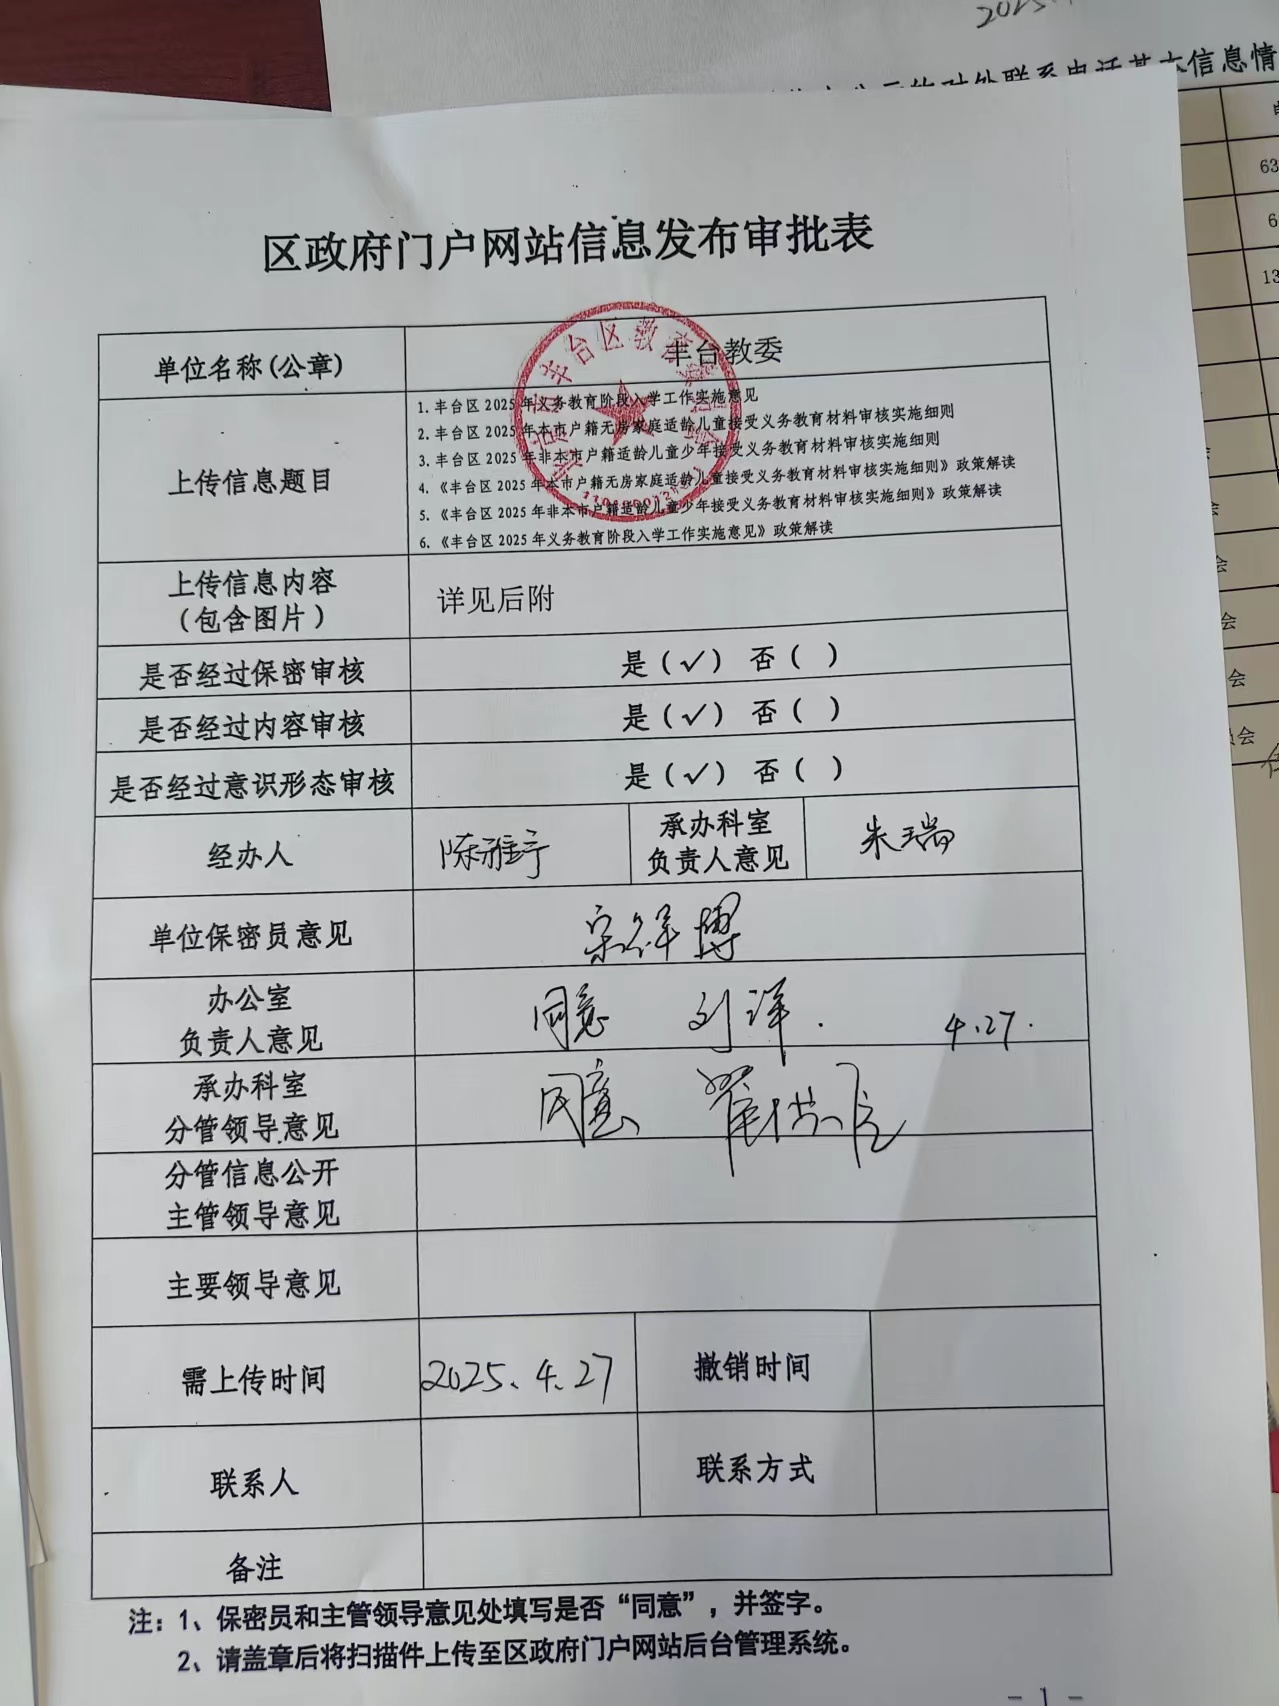 2025.
信息情
63
6
13
会
会
会
员会
区政府门户网站信息发布审批表
单位名称(公章)
丰台教委
上传信息题目
1. 丰台区 2025 年义务教育阶段入学工作实施意见
2. 丰台区 2025 年本市户籍无房家庭适龄儿童接受义务教育材料审核实施细则
3. 丰台区 2025 年非本市户籍适龄儿童少年接受义务教育材料审核实施细则
4. 《丰台区 2025 年本市户籍无房家庭适龄儿童接受义务教育材料审核实施细则》政策解读
5. 《丰台区 2025 年非本市户籍适龄儿童少年接受义务教育材料审核实施细则》政策解读
6. 《丰台区 2025 年义务教育阶段入学工作实施意见》政策解读
上传信息内容
(包含图片)
详见后附
是否经过保密审核
是(✓) 否( )
是否经过内容审核
是(✓) 否( )
是否经过意识形态审核
是(✓) 否( )
经办人
陈雅宁
承办科室
负责人意见
朱瑞
单位保密员意见
宗祥博
办公室
负责人意见
同意 刘洋. 4.27.
承办科室
分管领导意见
同意
分管信息公开
主管领导意见
主要领导意见
需上传时间
2025.4.27
撤销时间
联系人
联系方式
备注
注：1、保密员和主管领导意见处填写是否“同意”，并签字。
2、请盖章后将扫描件上传至区政府门户网站后台管理系统。
- 1 -